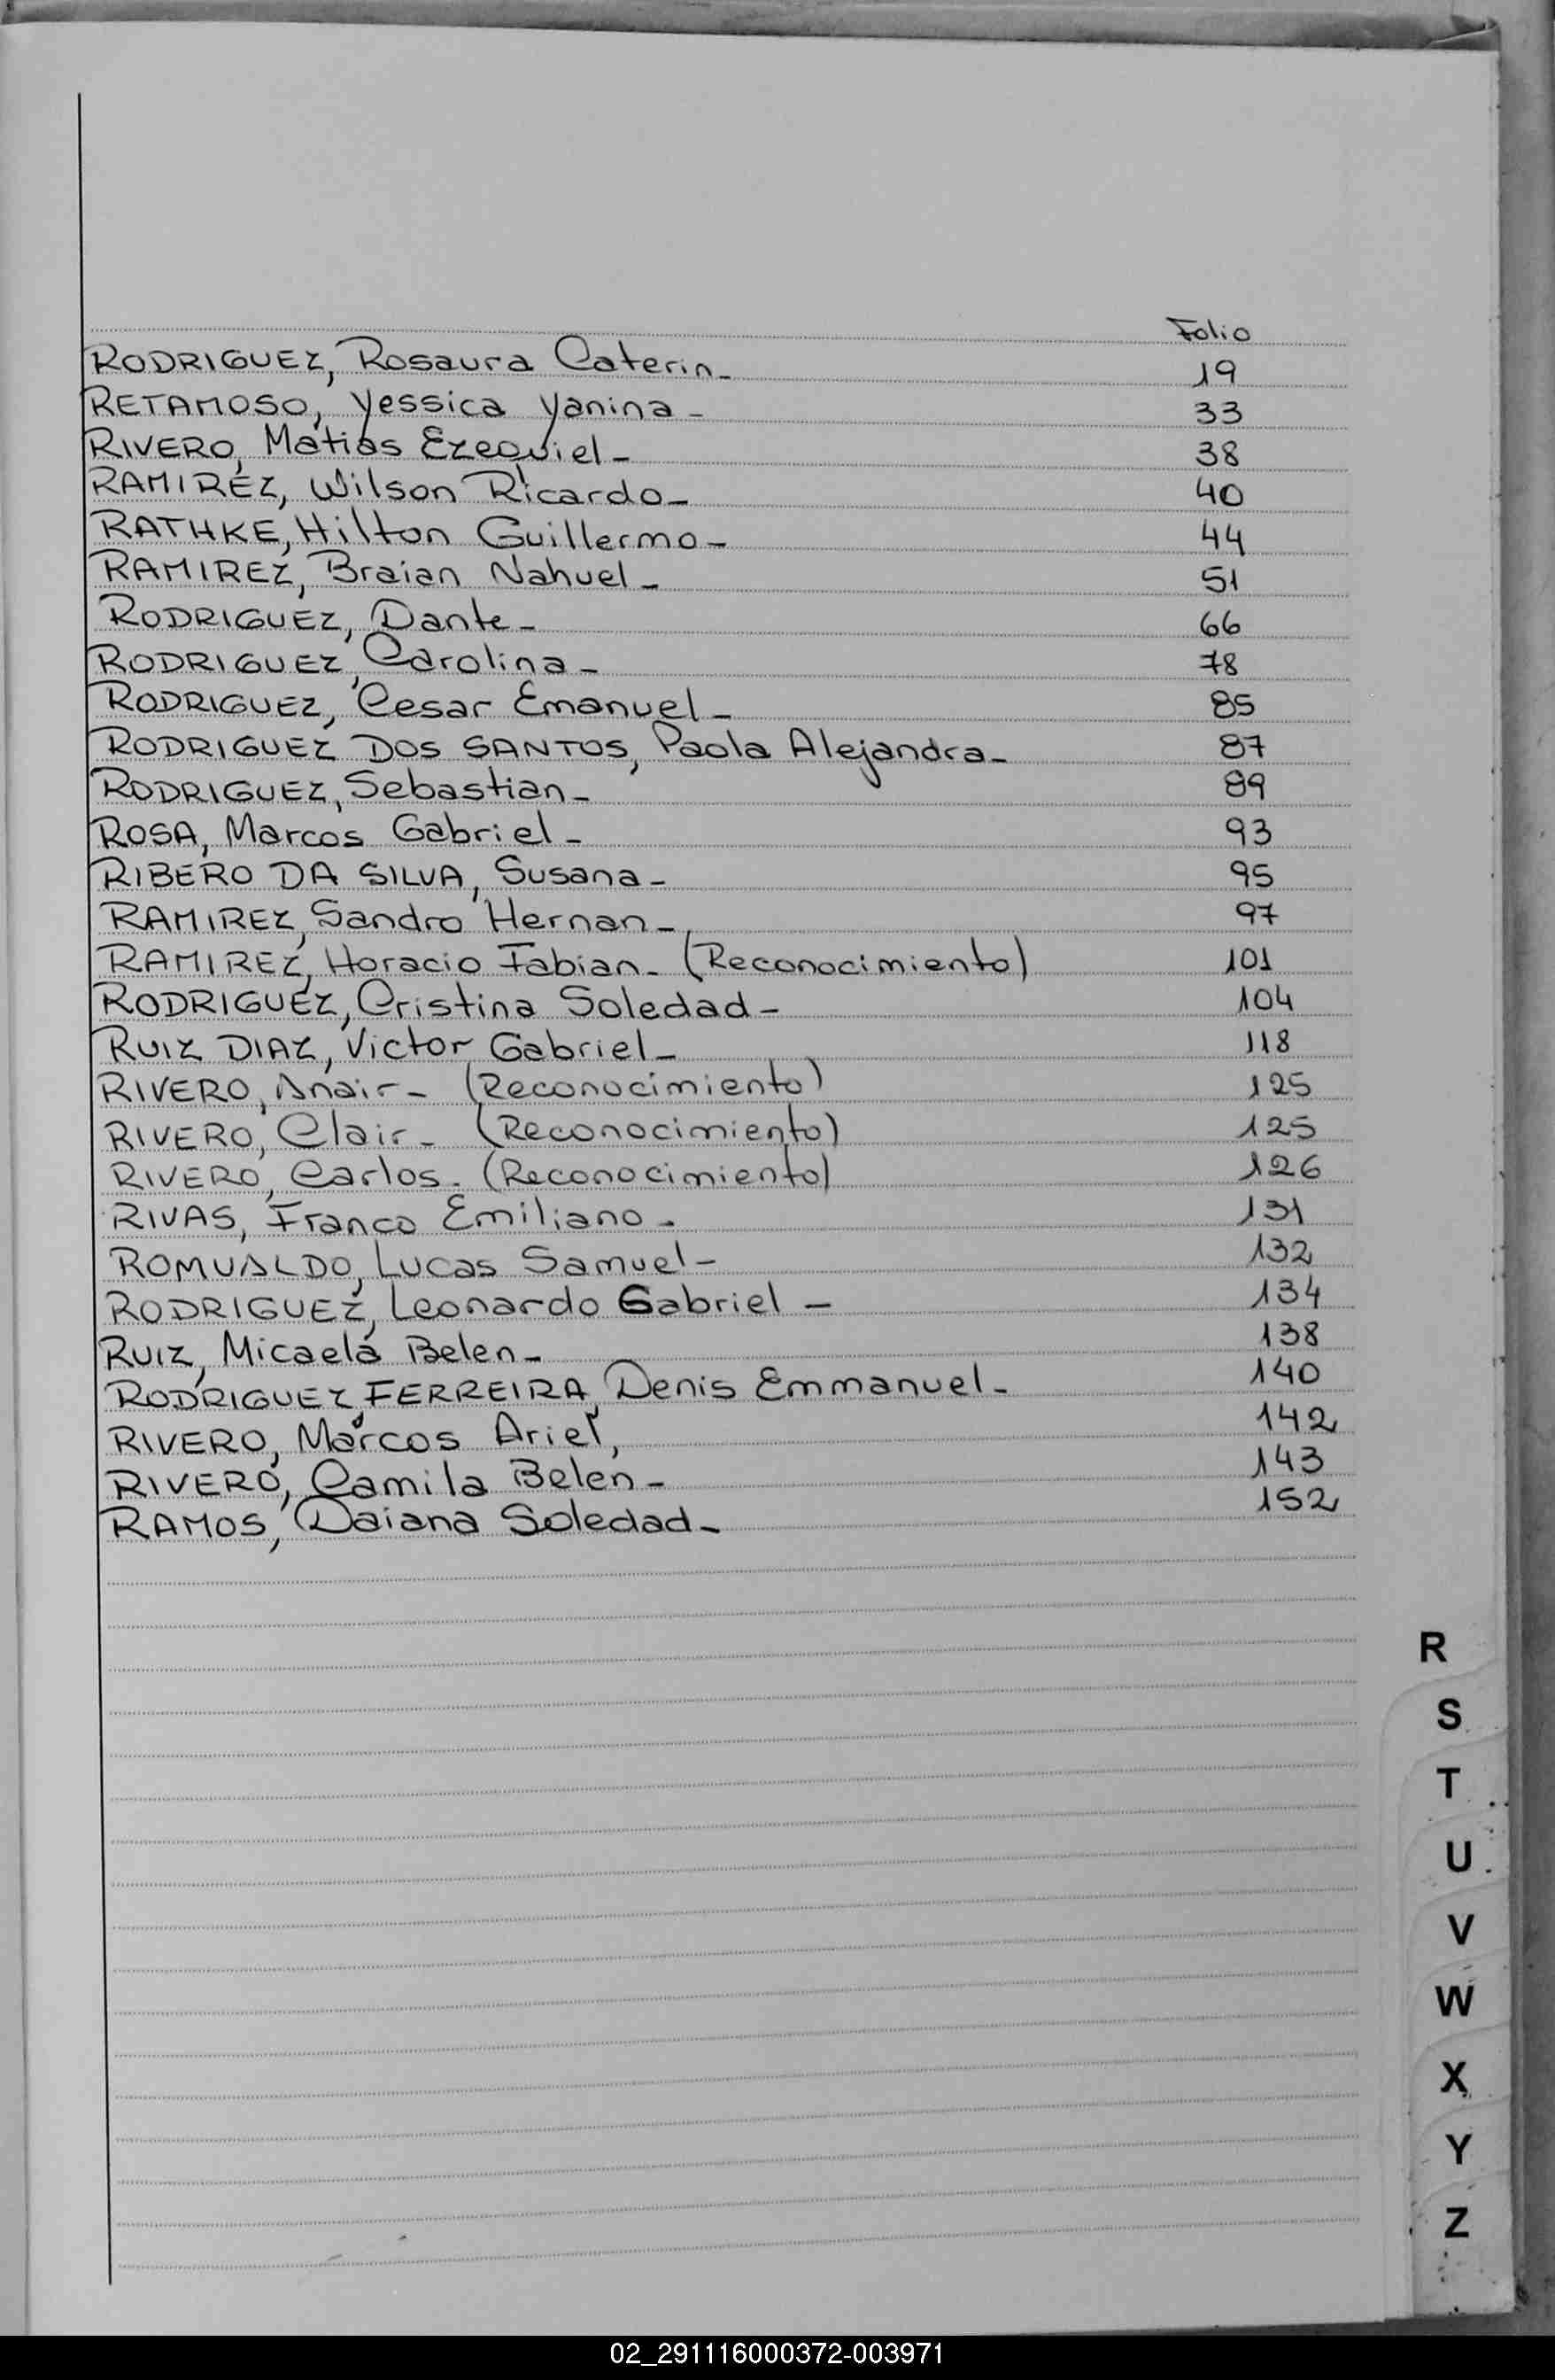 Folio
RODRIGUEZ, Rosaura Caterin- 19
RETAMOSO, Yessica Yanina- 33
RIVERO, Matias Ezequiel- 38
RAMIREZ, Wilson Ricardo- 40
RATHKE, Hilton Guillermo- 44
RAMIREZ, Braian Nahuel- 51
RODRIGUEZ, Dante- 66
RODRIGUEZ, Carolina- 78
RODRIGUEZ, Cesar Emanuel- 85
RODRIGUEZ DOS SANTOS, Paola Alejandra- 87
RODRIGUEZ, Sebastian- 89
ROSA, Marcos Gabriel- 93
RIBERO DA SILVA, Susana- 95
RAMIREZ, Sandro Hernan- 97
RAMIREZ, Horacio Fabian- (Reconocimiento) 101
RODRIGUEZ, Cristina Soledad- 104
RUIZ DIAZ, Victor Gabriel- 118
RIVERO, Anair- (Reconocimiento) 125
RIVERO, Clair- (Reconocimiento) 125
RIVERO, Carlos- (Reconocimiento) 126
RIVAS, Franco Emiliano- 131
ROMUALDO, Lucas Samuel- 132
RODRIGUEZ, Leonardo Gabriel- 134
RUIZ, Micaela Belen- 138
RODRIGUEZ FERREIRA, Denis Emmanuel- 140
RIVERO, Marcos Ariel, 142
RIVERO, Camila Belen- 143
RAMOS, Daiana Soledad- 152
R
S
T
U
V
W
X
Y
Z
02_291116000372-003971